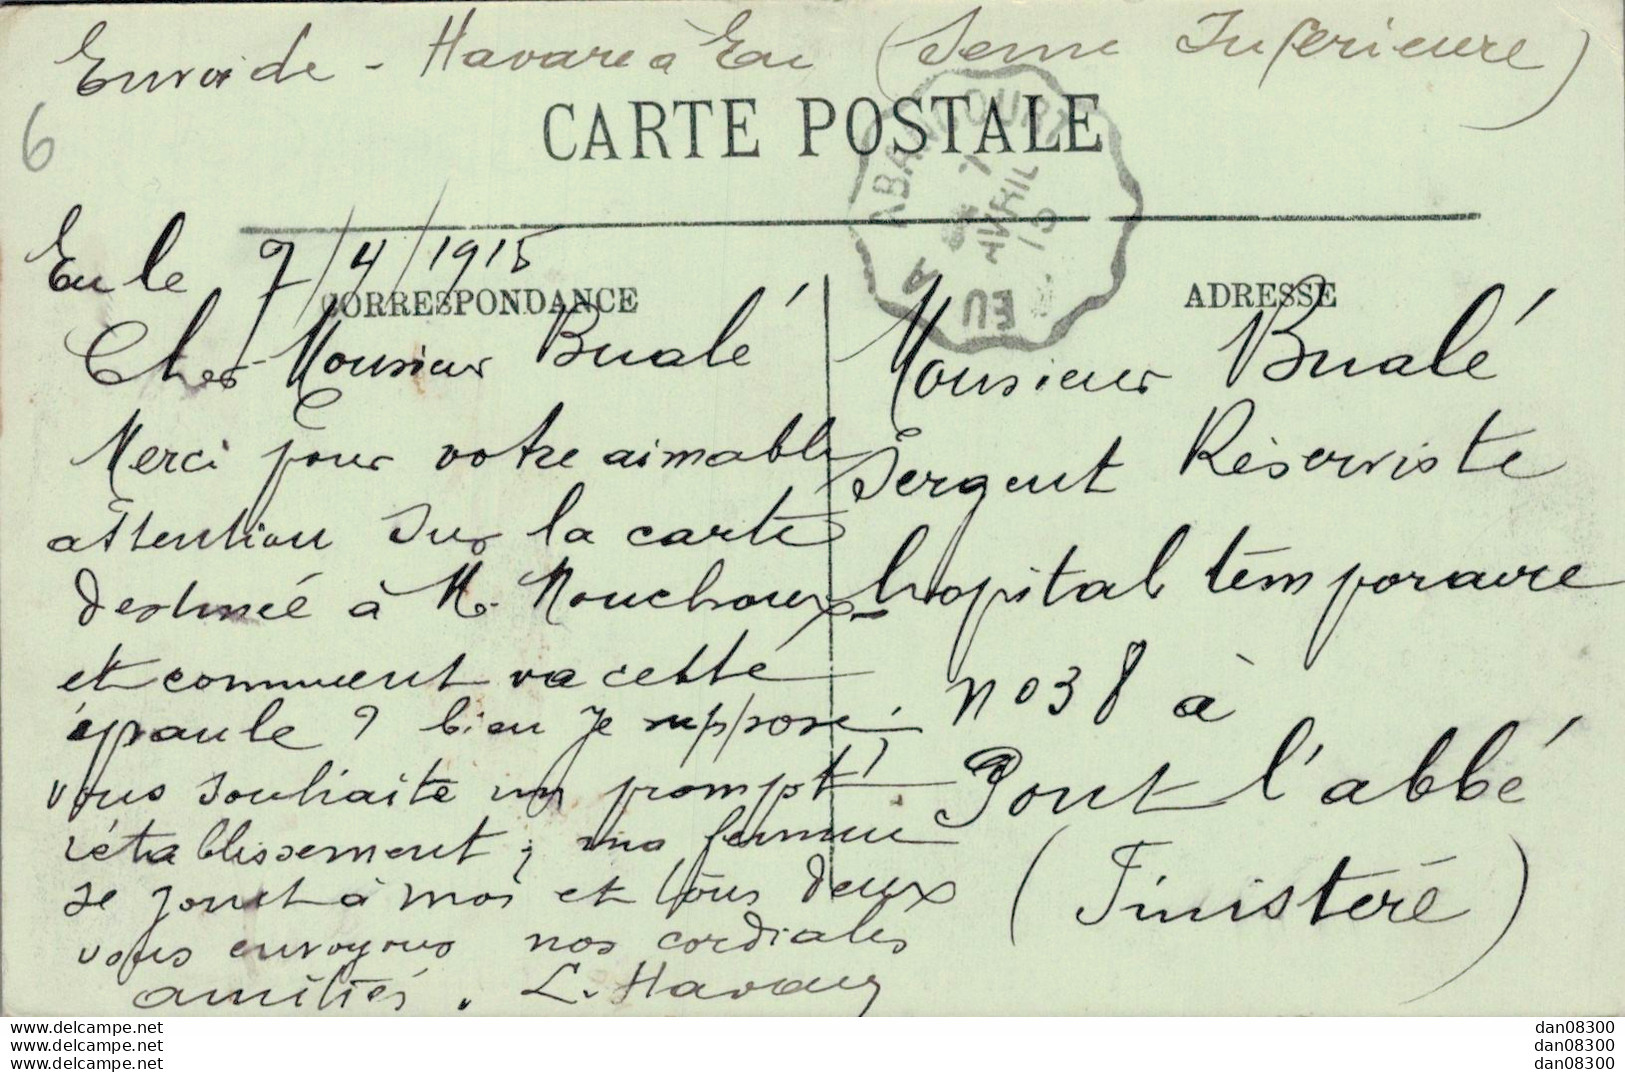 Envoi de - Havare à Eu (Seine Inferieure)
6
CARTE POSTALE
ABANCOURT
7
AVRIL
15
EU A
Eu le 7/4/1915
CORRESPONDANCE
Cher Monsieur Bualé
Merci pour votre aimable
attention sur la carte
destinée à M. Mouchoux
et comment va cette
épaule ? bien je suppose.
vous souhaite un prompt
rétablissement ; ma femme
se joint à moi et tous deux
vous envoyons nos cordiales
amitiés. L. Havary
ADRESSE
Monsieur Bualé
Sergent Réserviste
hopital temporaire
no 38 à
Pont l'abbé
(Finistère)
www.delcampe.net
www.delcampe.net
www.delcampe.net
dan08300
dan08300
dan08300